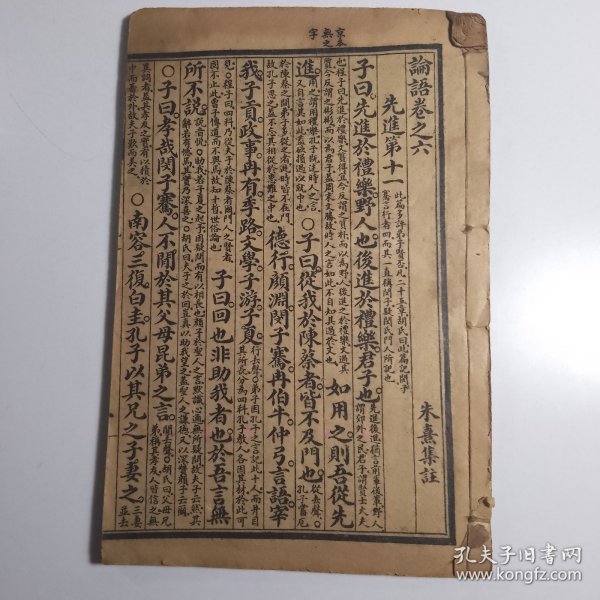 京本
無之
字
論語卷之六
朱熹集註
先進第十一 此篇多評弟子賢否凡二十五章胡氏曰此篇記閔子騫言行者四而其一直稱閔子疑閔氏門人所記也
子曰先進於禮樂野人也後進於禮樂君子也 先進後進猶言前輩後輩野人謂郊外之民君子謂賢士大夫
也程子曰先進於禮樂文質得宜今反謂之質朴而以為野人後進之於禮樂文過其質今反謂之彬彬而以為君子蓋周末文勝故時人之言如此不自知其過於文也 如用之則吾從先
進 用之謂用禮樂孔子既述時人之言又自言其如此蓋欲損過以就中也 ○子曰從我於陳蔡者皆不及門也 從去聲○孔子嘗厄
於陳蔡之間弟子多從之者此時皆不在門故孔子思之蓋不忘其相從於患難之中也 德行顏淵閔子騫冉伯牛仲弓言語宰
我子貢政事冉有季路文學子游子夏 行去聲○弟子因孔子之言記此十人而并目其所長分為四科孔子教人各因其材於此可
見○程子曰四科乃從夫子於陳蔡者爾門人之賢者固不止此曾子傳道而不與焉故知十哲世俗論也 子曰回也非助我者也於吾言無
所不說 說音悅○助我若子夏之起予因疑問而有以相長也顏子於聖人之言默識心通無所疑問故夫子云然其辭若有憾焉其實乃深喜之○胡氏曰夫子之於回豈真以助我望之蓋聖人之謙德又以深贊顏子云爾
○子曰孝哉閔子騫人不間於其父母昆弟之言 間去聲○胡氏曰父母兄弟稱其孝友人皆信之無
異詞者蓋其孝友之實有以積於中而著於外故夫子歎而美之 ○南容三復白圭孔子以其兄之子妻之 三妻並去
孔夫子旧书网
www.kongfz.com